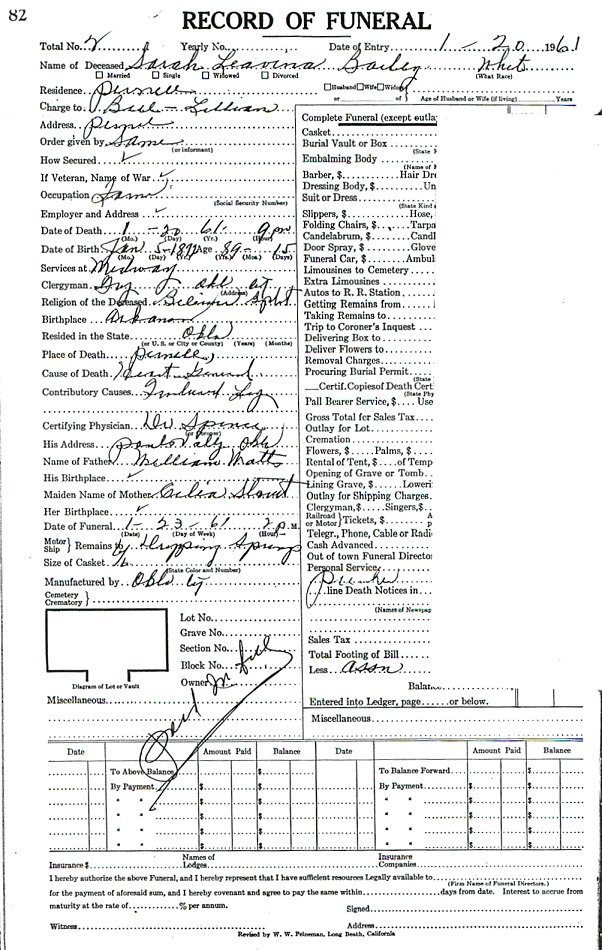 82
RECORD OF FUNERAL
Total No. 2 Yearly No. Date of Entry 1 - 20 1961
Name of Deceased Sarah Leavina Bailey White
(What Race)
Married Single Widowed Divorced
Residence Pernell Husband Wife Widow
or of Age of Husband or Wife (if living) Years
Charge to Bill - Lillian
Address Pernell
Order given by Same
(or informant)
How Secured
If Veteran, Name of War
Occupation
(Social Security Number)
Employer and Address
Date of Death 1 - 20 61 - 9 pm
(Mo.) (Day) (Yr.) (Hour)
Date of Birth Jan 5 - 1872 Age 89 - - 15
(Mo.) (Day) (Yr.) (Yrs.) (Mos.) (Days)
Services at Midway
Clergyman Okl City
(Address)
Religion of the Deceased Baptist
Birthplace Arkansas
Resided in the State Okla
(or U. S. or City or County) (Years) (Months)
Place of Death Pernell
Cause of Death
Contributory Causes
Certifying Physician Dr Spence
(or Coroner)
His Address Pauls Vally Okla
Name of Father William Matts
His Birthplace
Maiden Name of Mother Stout
Her Birthplace
Date of Funeral 1 - 23 - 61 2 P. M.
(Date) (Day of Week) (Hour)
Motor
Ship } Remains to Dropping Springs
Size of Casket
(State Color and Number)
Manufactured by Okla City
Cemetery
Crematory }
Lot No.
Grave No.
Section No.
Block No.
Owner Jr
Diagram of Lot or Vault
Miscellaneous
Paid
Complete Funeral (except outla
Casket
Burial Vault or Box
(State
Embalming Body
(Name of
Barber, $ Hair Dre
Dressing Body, $ Un
Suit or Dress
(State Kind
Slippers, $ Hose,
Folding Chairs, $ Tarpa
Candelabrum, $ Candl
Door Spray, $ Glove
Funeral Car, $ Ambul
Limousines to Cemetery
Extra Limousines
Autos to R. R. Station
Getting Remains from
Taking Remains to
Trip to Coroner's Inquest
Delivering Box to
Deliver Flowers to
Removal Charges
Procuring Burial Permit
(State
Certif. Copies of Death Cert
(State Phy
Pall Bearer Service, $ Use
Gross Total for Sales Tax
Outlay for Lot
Cremation
Flowers, $ Palms, $
Rental of Tent, $ of Temp
Opening of Grave or Tomb
Lining Grave, $ Loweri
Outlay for Shipping Charges
Clergyman, $ Singers, $
Railroad
or Motor } Tickets, $
Telegr., Phone, Cable or Radi
Cash Advanced
Out of town Funeral Directo
Personal Service
line Death Notices in
(Names of Newspap
Sales Tax
Total Footing of Bill
Less Assn
Balanc
Entered into Ledger, page or below.
Miscellaneous
Date Amount Paid Balance Date Amount Paid Balance
To Above Balance $ To Balance Forward $
By Payment $ $ By Payment $ $
" " $ $ " " $ $
" " $ $ " " $ $
" " $ $ " " $ $
" " $ $ " " $ $
Insurance $ Names of Lodges Insurance Companies
I hereby authorize the above Funeral, and I hereby represent that I have sufficient resources Legally available to
(Firm Name of Funeral Directors.)
for the payment of aforesaid sum, and I hereby covenant and agree to pay the same within days from date. Interest to accrue from
maturity at the rate of % per annum.
Signed
Witness Address
Revised by W. W. Peineman, Long Beath, California